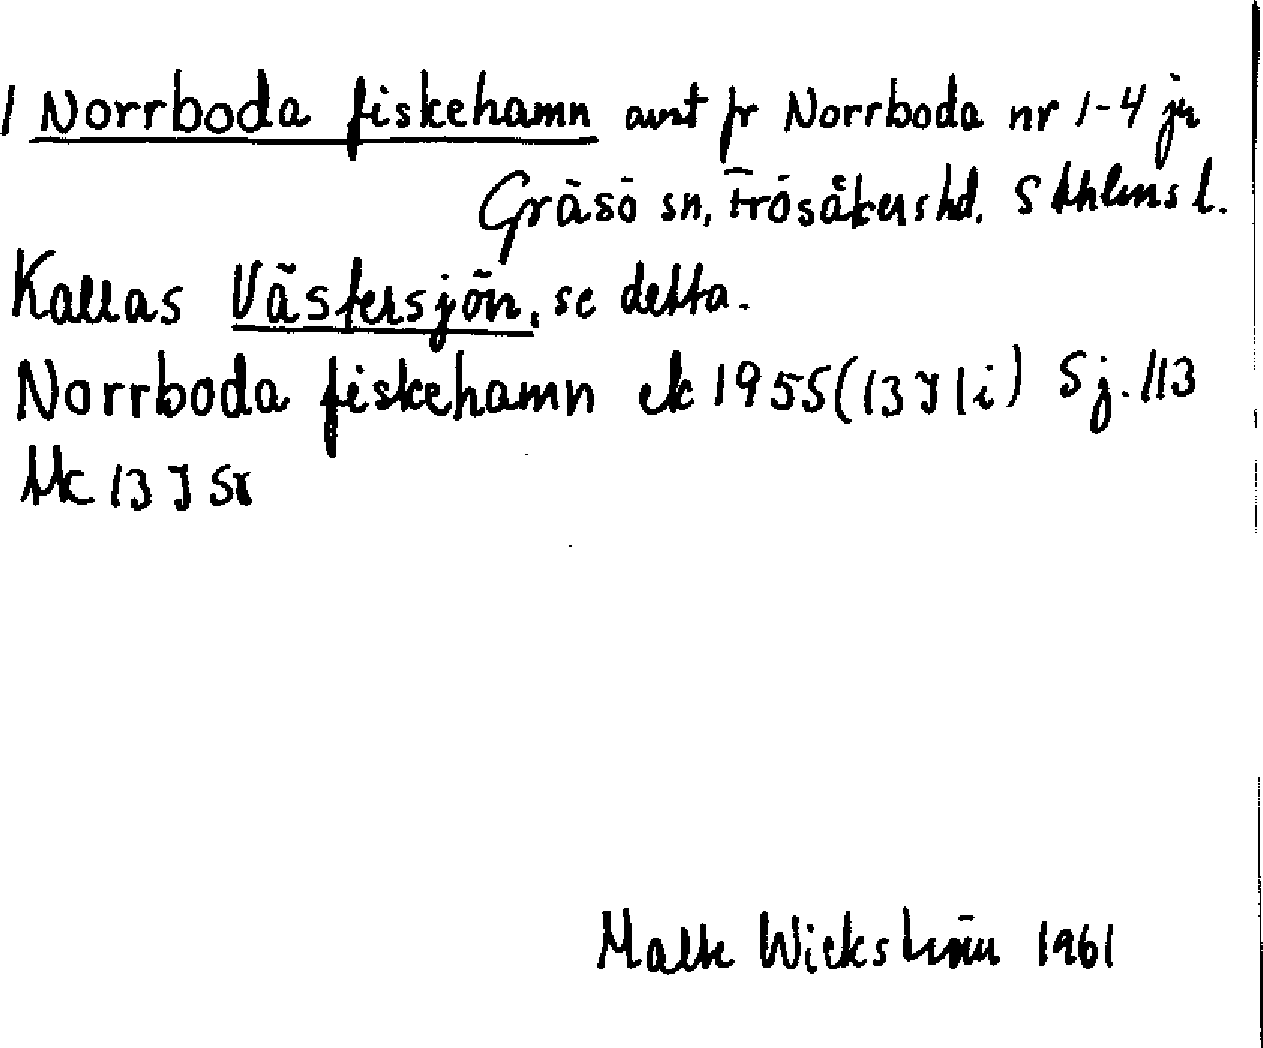 1 Norrboda fiskehamn avst fr Norrboda nr 1-4 ju
Gräsö sn, Frösåkers hd. Sthlms l.
Kallas Västersjön, se detta.
Norrboda fiskehamn ek 1955 (13 I 1 i) Sj. 113
Mc 13 I
Malte Wickström 1961